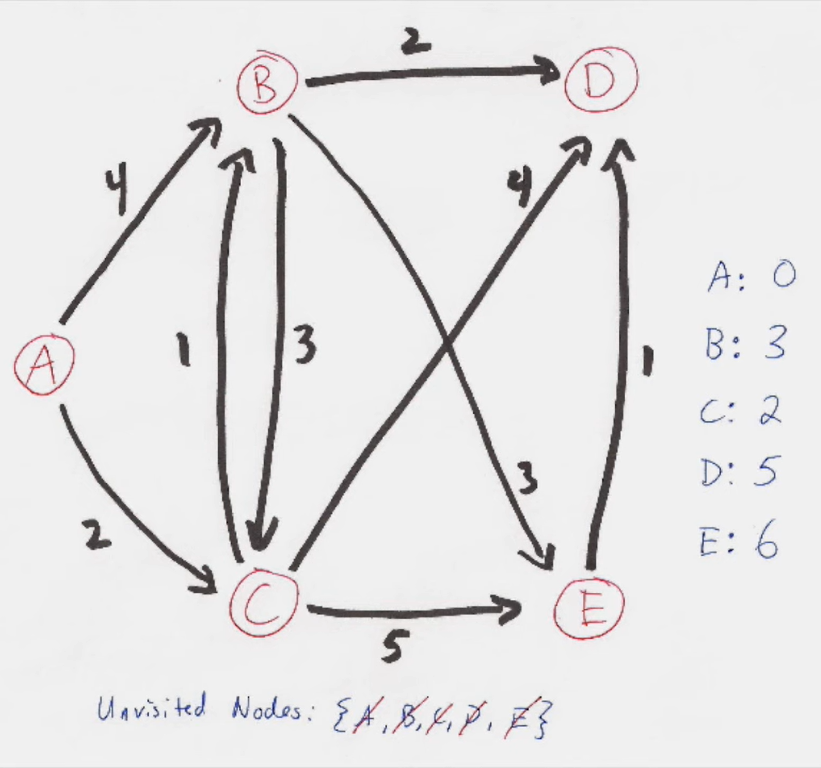 2
B
D
4
4
A
1
3
1
2
3
C
E
5
A: 0
B: 3
C: 2
D: 5
E: 6
Unvisited Nodes: {A, B, C, D, E}